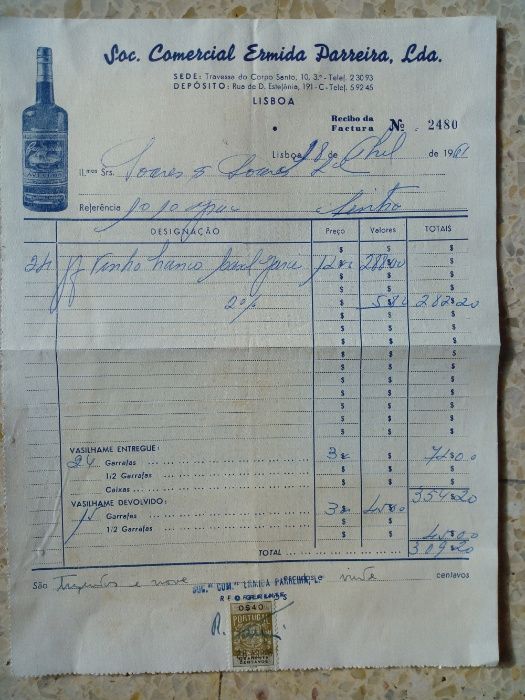 Soc. Comercial Ermida Parreira, Lda.
SEDE: Travessa do Corpo Santo, 10, 3.º - Telef. 2 30 93
DEPÓSITO: Rua de D. Estefânia, 191 - C - Telef. 5 92 45
LISBOA
Recibo da Factura Nº 2480
Lisboa, 18 de Abril de 1961
Il.mos Srs. Soares & Soares L.da
Referência
Sintra
DESIGNAÇÃO Preço Valores TOTAIS
24 gf Vinho branco 12$ 288$00
2% 5$80 282$20
VASILHAME ENTREGUE:
24 Garrafas 3$ 72$00
1/2 Garrafas
Caixas 354$20
VASILHAME DEVOLVIDO:
15 Garrafas 3$ 45$00
1/2 Garrafas 45$00
TOTAL 309$20
São Trezentos e nove escudos e vinte centavos
SOC. COM. ERMIDA PARREIRA, L.
0$40
PORTUGAL
QUARENTA
CENTAVOS